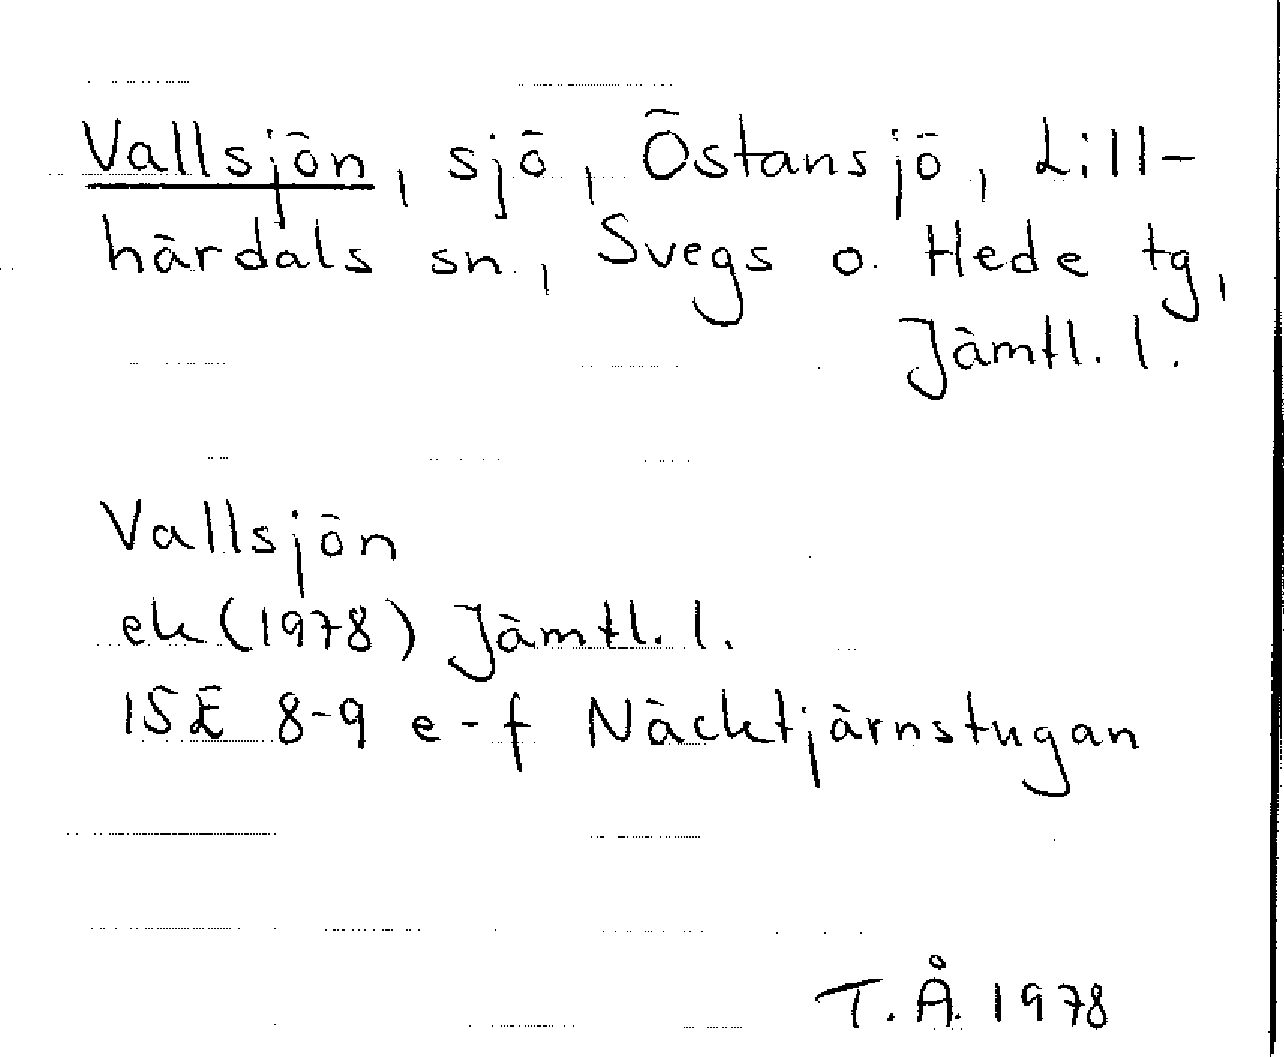 Vallsjön, sjö, Östansjö, Lill-
härdals sn., Svegs o. Hede tg,
Jämtl. l.
Vallsjön
ek (1978) Jämtl. l.
15E 8-9 e-f Näcktjärnstugan
T.Å. 1978